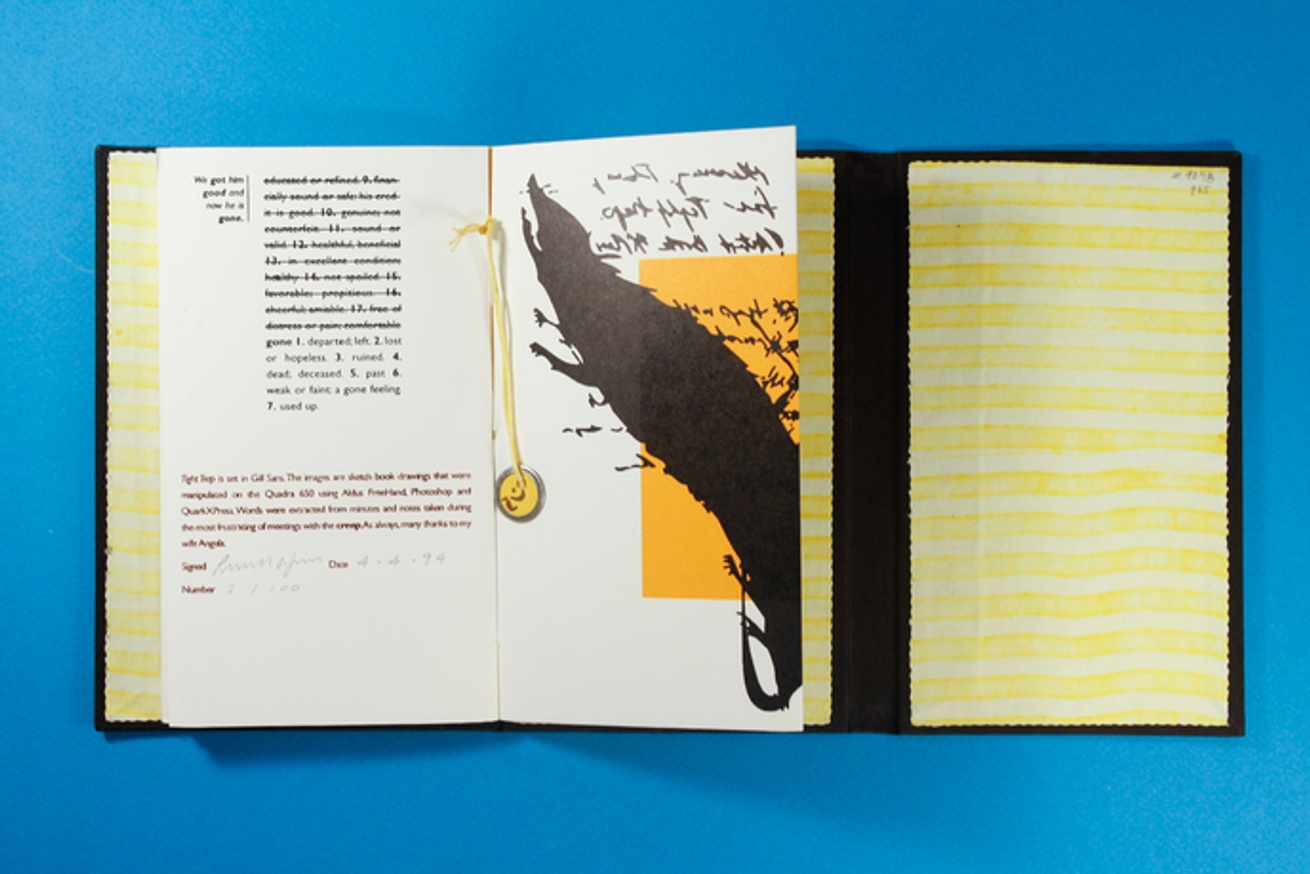 We got him
good and
now he is
gone.
educated or refined. 9. finan-
cially sound or safe: his cred-
it is good. 10. genuine; not
counterfeit. 11. sound or
valid. 12. healthful, beneficial
13. in excellent condition;
healthy 14. not spoiled. 15.
favorable; propitious. 16.
cheerful; amiable. 17. free of
distress or pain; comfortable
gone 1. departed; left. 2. lost
or hopeless. 3. ruined. 4.
dead; deceased. 5. past 6.
weak or faint; a gone feeling.
7. used up.
Tight Trap is set in Gill Sans. The images are sketch book drawings that were
manipulated on the Quadra 650 using Aldus FreeHand, Photoshop and
QuarkXPress. Words were extracted from minutes and notes taken during
the most frustrating of meetings with the creep. As always, many thanks to my
wife Angela.
Signed Date 4 . 4 . 94
Number 2 / 100